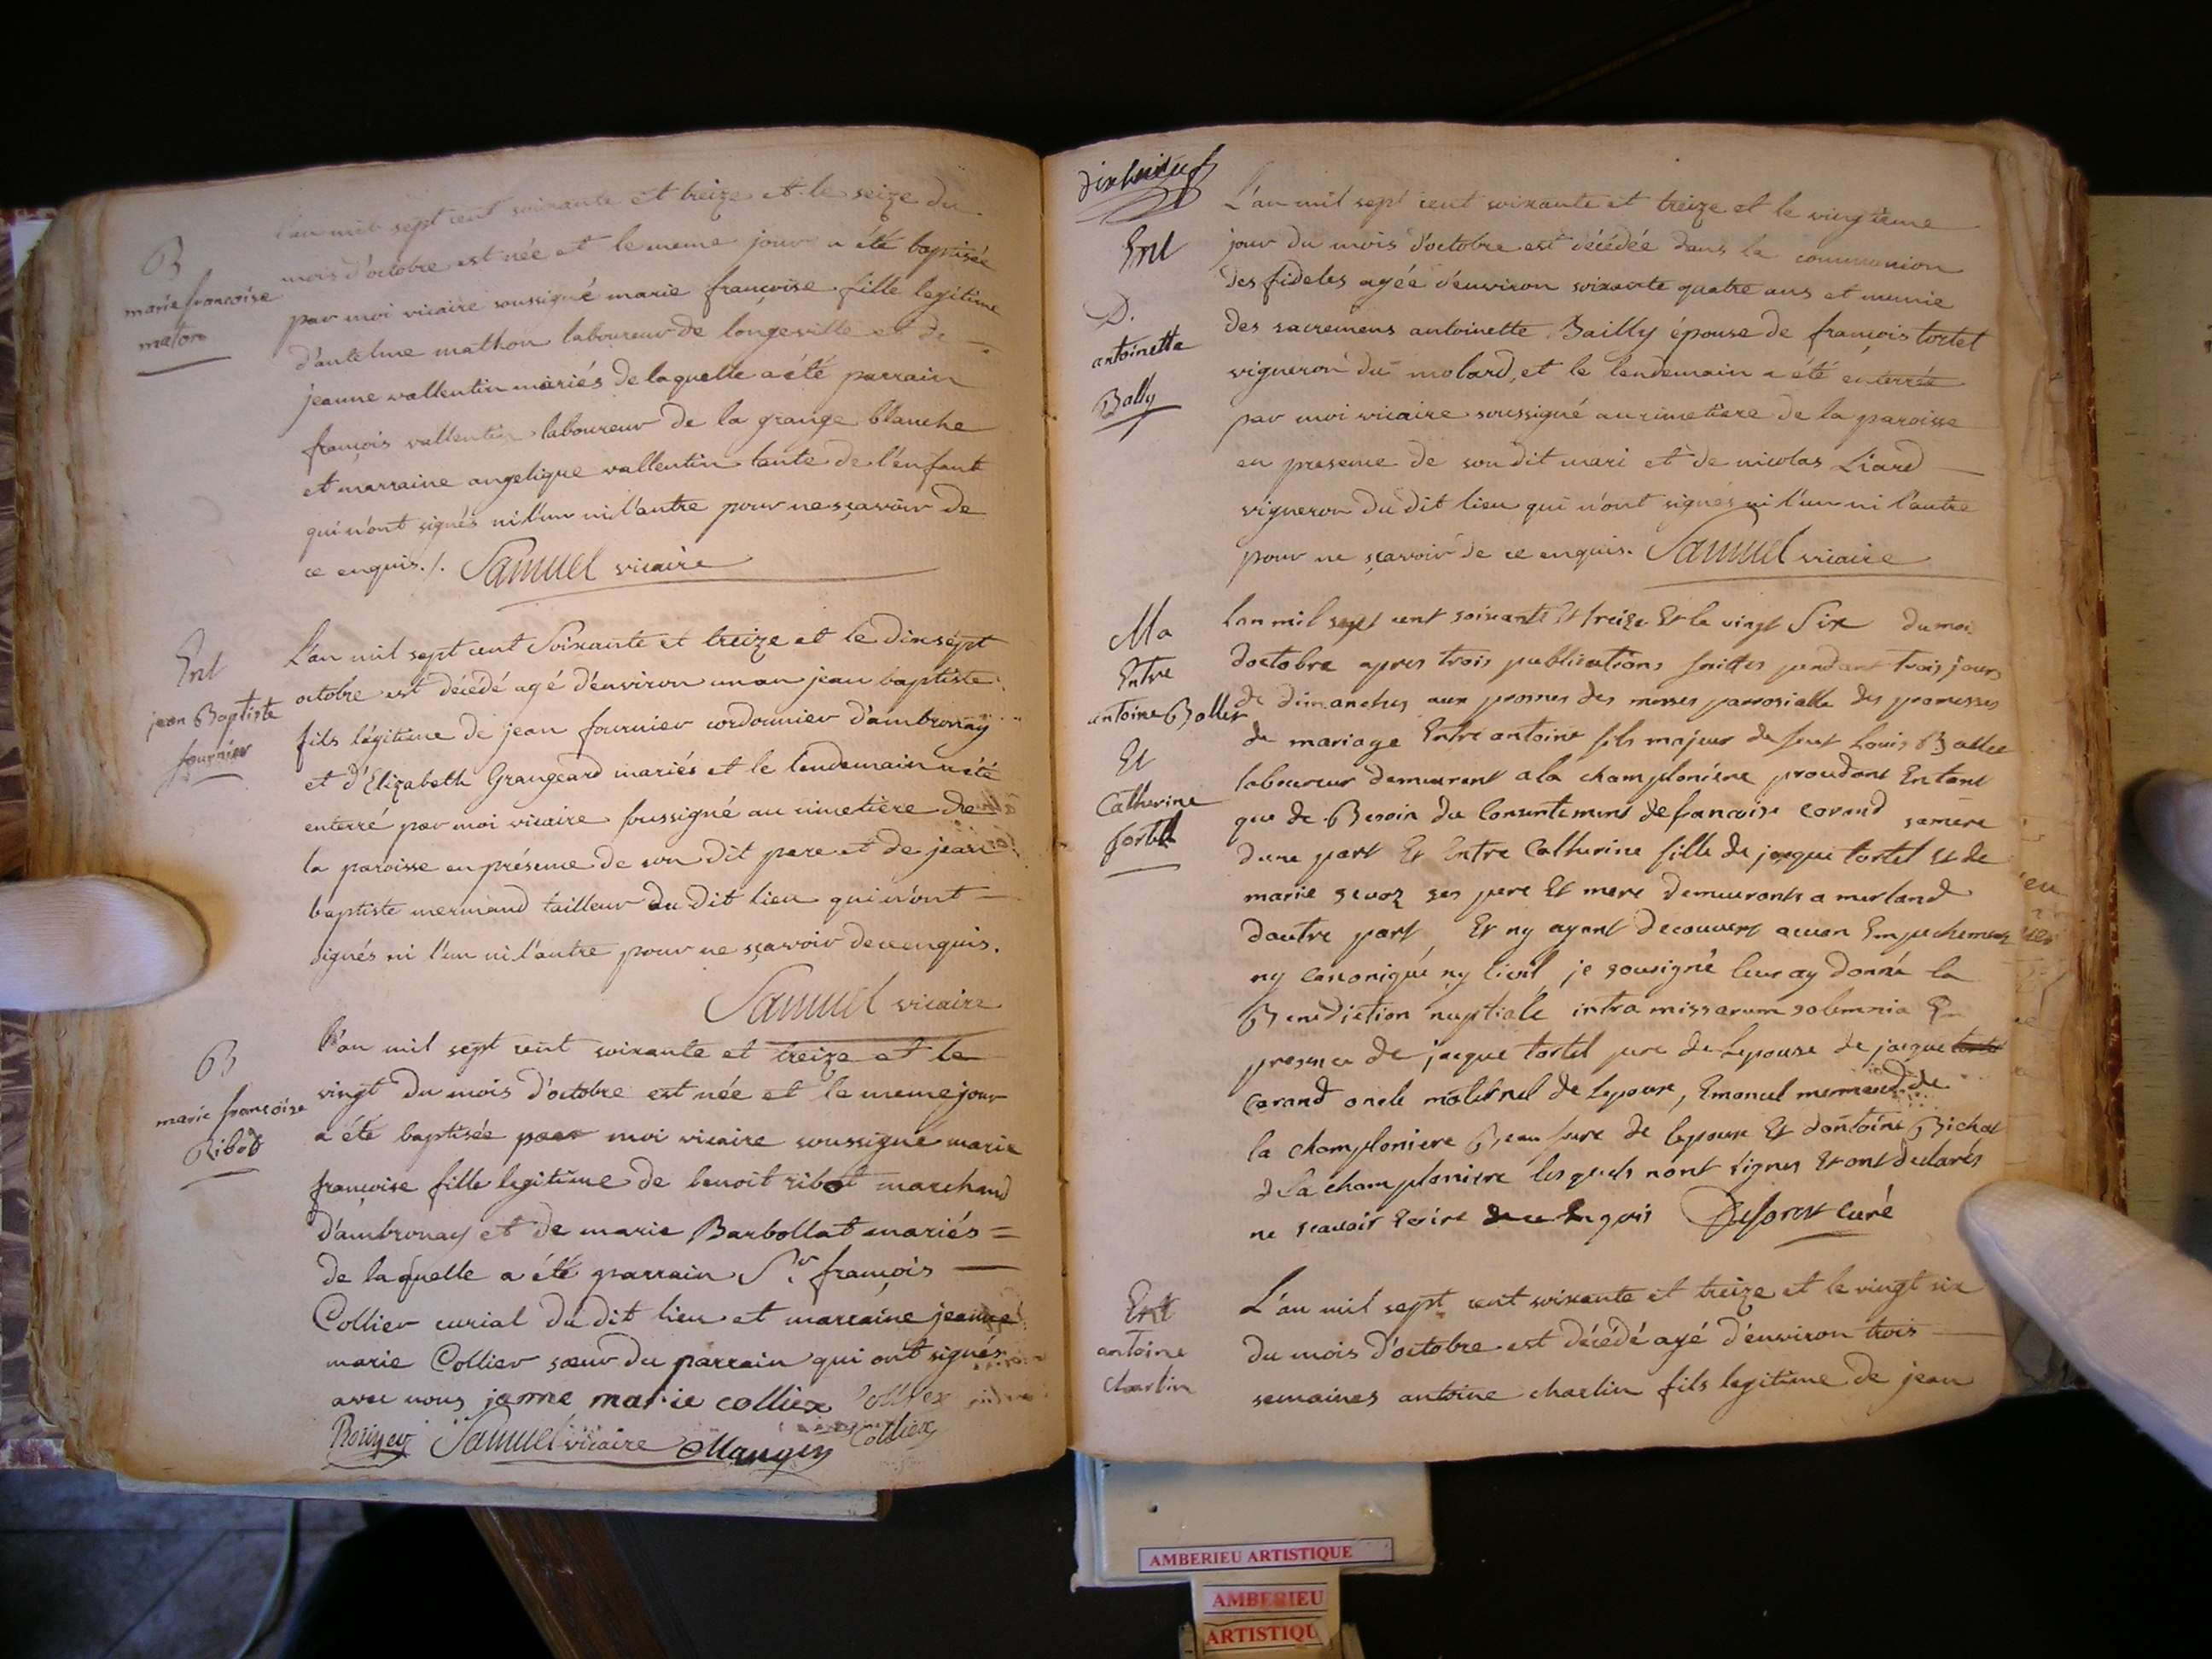 B
marie francoise
maton
L'an mil sept cent soixante et treize et le seize du
mois d'octobre est née et le meme jour a été baptisée
par moi vicaire soussigné marie françoise fille legitime
d'antelme mathon laboureur de longeville et de
jeanne vallentin mariés de laquelle a été parrain
françois vallentin laboureur de la grange blanche
et marraine angelique vallentin tante de l'enfant
qui n'ont signés ni l'un ni l'autre pour ne sçavoir de
ce enquis ./. Samuel vicaire
Ent
jean Baptiste
fournier
L'an mil sept cent Soixante et treize et le dix sept
octobre est décédé agé d'environ un an jean baptiste
fils légitime de jean fournier cordonnier d'ambronay
et d'Elizabeth Grangeard mariés et le lendemain a été
enterré par moi vicaire soussigné au cimetière de
la paroisse en présence de son dit pere et de jean
baptiste mermand tailleur du dit lieu qui n'ont
signés ni l'un ni l'autre pour ne sçavoir de ce enquis.
Samuel vicaire
B
marie françoise
Ribot
L'an mil sept cent soixante et treize et le
vingt du mois d'octobre est née et le meme jour
a été baptisée par moi vicaire soussigné marie
françoise fille legitime de benoit ribot marchand
d'ambronay et de marie Barbollat mariés =
de laquelle a été parrain Sr. françois
Collier curial du dit lieu et marraine jeanne
marie Collier sœur du parrain qui ont signés
avec nous janne marie colliex Colliex
Samuel vicaire Mangin Colliex
dixhuit
Ent
D.
antoinette
Bally
L'an mil sept cent soixante et treize et le vingtieme
jour du mois d'octobre est décédée dans la communion
des fideles agée d'environ soixante quatre ans et munie
des sacremens antoinette Bailly épouse de françois tortel
vigneron du molard, et le lendemain a été enterrée
par moi vicaire soussigné au cimetiere de la paroisse
en presence de son dit mari et de nicolas Liard
vigneron du dit lieu qui n'ont signés ni l'un ni l'autre
pour ne sçavoir de ce enquis. Samuel vicaire
Ma
Entre
antoine Ballet
Et
Catherine
tortel
lan mil sept cent soixante Et treize Et le vingt Six du moi
doctobre apres trois publications faittes pendant trois jours
de dimanches aux prones des messes parrosialle des promesses
de mariage Entre antoine fils majeur de feut Louis Ballet
laboureur demeurent a la champlonière procedant En tant
que de Besoin du Consentement de francoise corand sa mere
dune part Et Entre Catherine fille de jacque tortel Et de
marie sevoz ses pere Et mere demeurants a merland
dautre part Et ny ayant decouvert aucun Empechement
ny canonique ny civil, je sousigné leur ay donné la
Benediction nuptiale intra missarum solemnia En
presence de jacque tortel pere de lepouse de jacque
Carand oncle maternel de lepoux, Emanuel mermand de
la champloniere Beau frere de lepoux Et dantoine Bichat
de la champloniere lesquels nont signes Et ont declarés
ne scavoir Ecrire de ce Enquis Deforest curé
Ent
antoine
charlin
L'an mil sept cent soixante et treize et le vingt six
du mois d'octobre est décédé agé d'environ trois
semaines antoine charlin fils legitime de jean
AMBERIEU ARTISTIQUE
AMBERIEU
ARTISTIQU